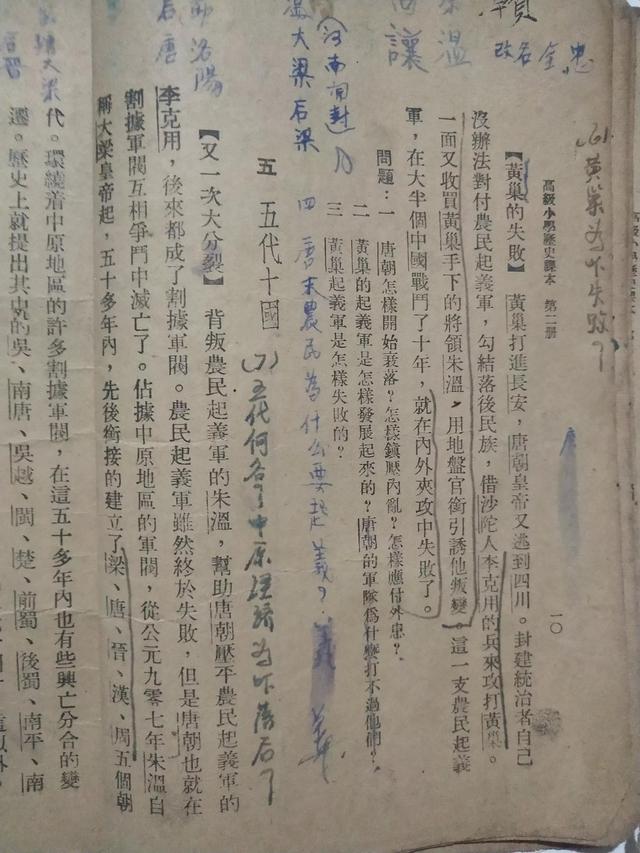 高級小學歷史課本　第二册
一〇
【黃巢的失敗】　黃巢打進長安，唐朝皇帝又逃到四川。封建統治者自己
沒辦法對付農民起義軍，勾結落後民族，借沙陀人李克用的兵來攻打黃巢。
一面又收買黃巢手下的將領朱溫，用地盤官銜引誘他叛變。這一支農民起義
軍，在大半個中國戰鬥了十年，就在內外夾攻中失敗了。
問題：一　唐朝怎樣開始衰落？怎樣鎮壓內亂？怎樣應付外患？
二　黃巢的起義軍是怎樣發展起來的？唐朝的軍隊爲什麼打不過他們？
三　黃巢起義軍是怎樣失敗的？
四　唐末農民為什么要起義？義
五　五代十國
(7)五代何名？中原經濟為什落后？
【又一次大分裂】　背叛農民起義軍的朱溫，幫助唐朝壓平農民起義軍的
李克用，後來都成了割據軍閥。農民起義軍雖然終於失敗，但是唐朝也就在
割據軍閥互相爭鬥中滅亡了。佔據中原地區的軍閥，從公元九零七年朱溫自
稱大梁皇帝起，五十多年內，先後銜接的建立了梁、唐、晉、漢、周五個朝
代。環繞著中原地區的許多割據軍閥，在這五十多年內也有些興亡分合的變
遷。歷史上就提出其中的吳、南唐、吳越、閩、楚、前蜀、後蜀、南平、南
(6)黃巢為什失敗？
改名全忠
溫
讓
(河南開封)
大梁后梁
洛陽
唐